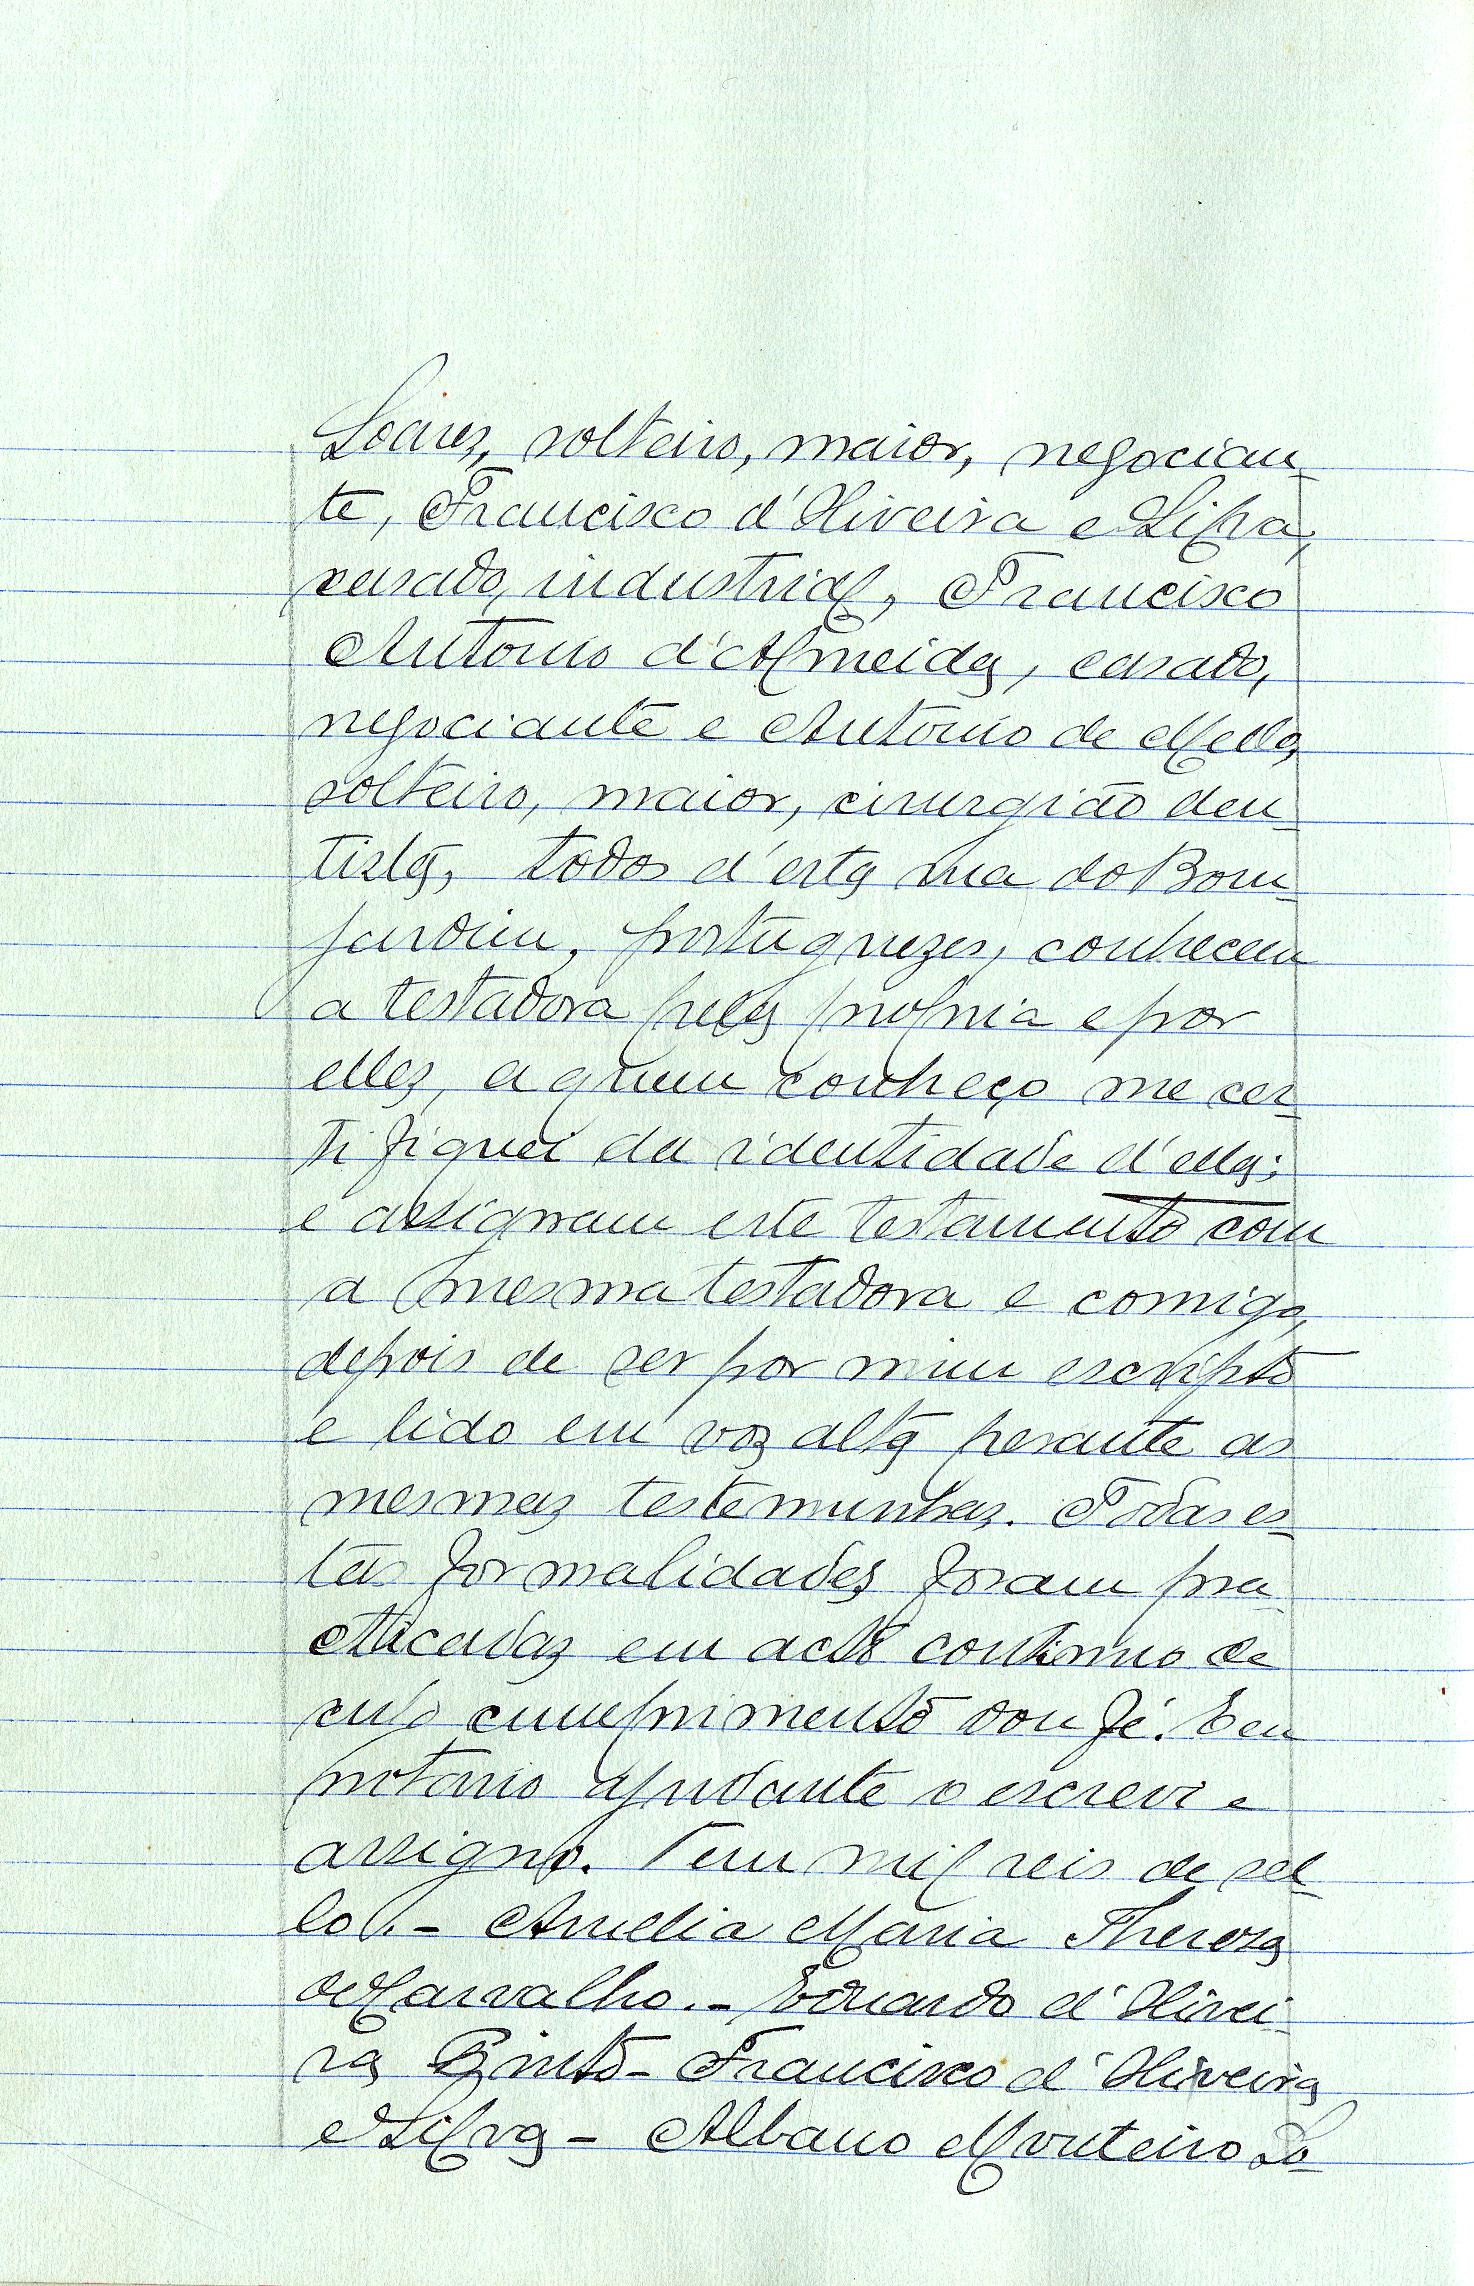 Soares, solteiro, maior, negocian-
te, Francisco d'Oliveira e Silva,
casado, industrial, Francisco
Antonio d'Almeida, casado,
negociante e Antonio de Mello,
solteiro, maior, cirurgião den-
tista, todos d'esta rua do Bom-
jardim, portuguezes, conhecem
a testadora pela propria e por
elles, a quem conheço me cer-
tifiquei da identidade d'ella;
e assignam este testamento com
a mesma testadora e comigo,
depois de ser por mim escripto
e lido em voz alta perante as
mesmas testemunhas. Todas es-
tas formalidades foram pra-
cticadas em acto continuo de
cujo cumprimento dou fé. E eu
notario ajudante o escrevi e
assigno. Tem mil reis de sel-
lo.- Amelia Maria Thereza
de Carvalho.- Eduardo d'Olivei-
ra Pinto- Francisco d'Oliveira
e Silva - Albano Monteiro So-